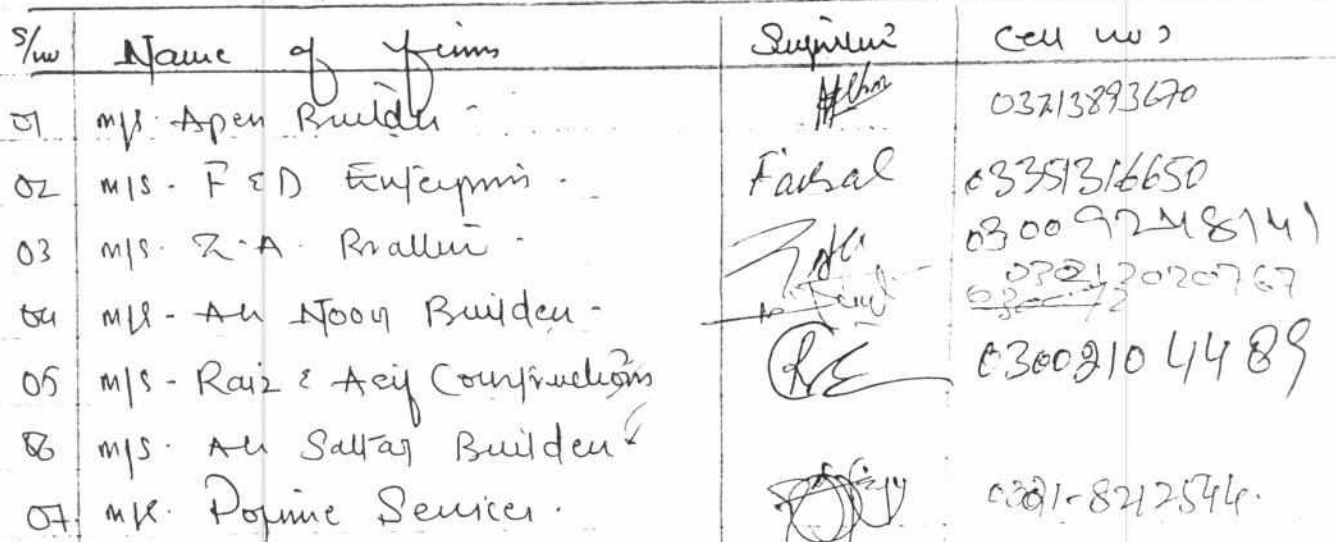 S/no Name of firms Signature Cell no s
01 M/S. Apen Builder 03213893670
02 M/S - F & D Enterprises - Faisal 03351316650
03 M/S. Z.A. Brother - 03009248141
04 M/S - Al Noor Builder - 03213020767
05 M/S - Raiz & Asif Constructions 03002104489
06 M/S. Al Sattar Builder
07 M/S. Services. 0321-8212544.